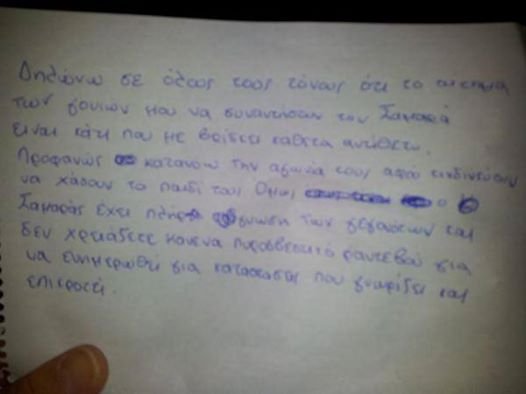 Δηλώνω σε όλους τους τόνους ότι το αιτημα
των γονιων μου να συναντησουν τον Σαμαρά
ειναι κάτι που με βρίσκει κάθετα αντίθετο.
Προφανώς κατανοω την αγωνία τους αφού κινδυνεύουν
να χάσουν το παιδί τους Όμως ο
Σαμαράς έχει πλήρη γνωση των γεγονότων και
δεν χρειάζεται κανενα πυροσβεστικό ραντεβού για
να ενημερωθεί για καταστασεις που γνωρίζει και
επικροτεί.